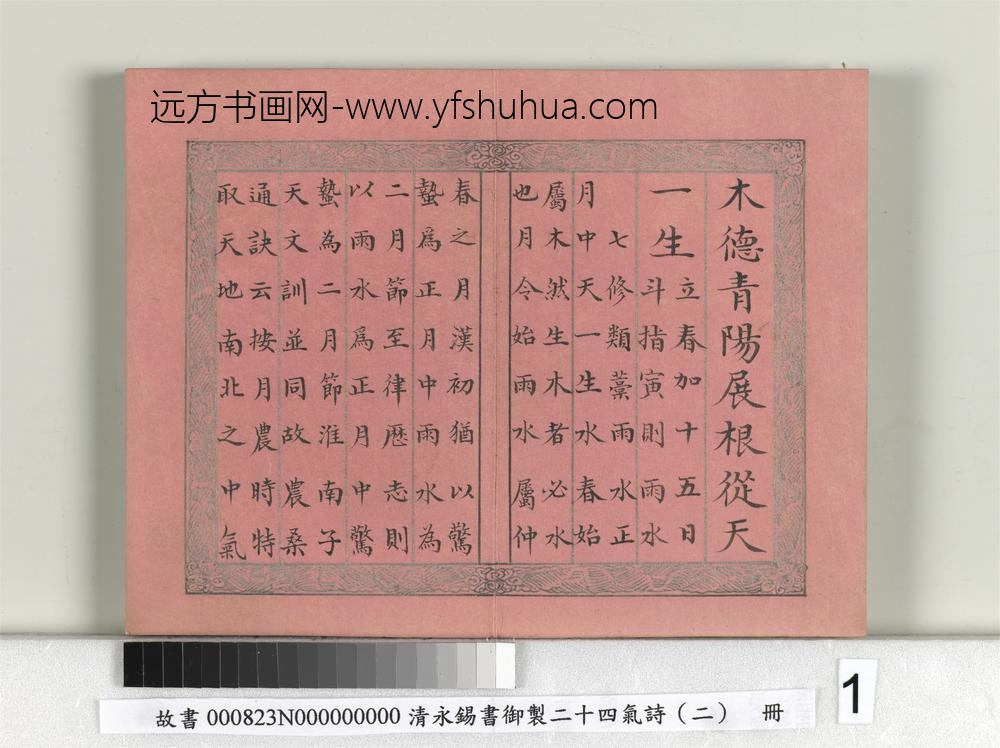 远方书画网-www.yfshuhua.com
木德青陽展根從天
一生
立春加十五日
斗指寅則雨水
七修類藁雨水正
月中天一生水春始
屬木然生木者必水
也月令始雨水屬仲
春之月漢初猶以驚
蟄爲正月中雨水為
二月節至律厯志則
以雨水爲正月中驚
蟄為二月節淮南子
天文訓並同故農桑
通訣云按月農時特
取天地南北之中氣
故書 000823N000000000 清永錫書御製二十四氣詩（二） 冊
1